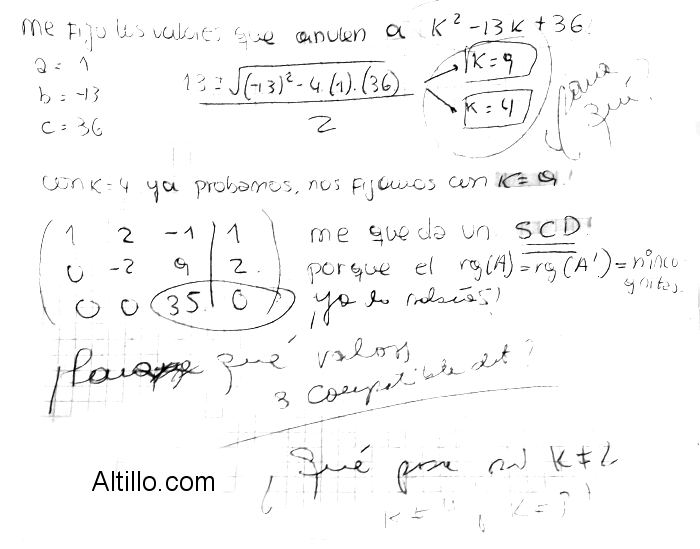 me fijo los valores que anulen a K² - 13K + 36!
a = 1
b = -13
c = 36
13 ± √(-13)² - 4.(1).(36)
2
K = 9
K = 4
¿para qué?
con K=4 ya probamos, nos fijamos con K=9!
1 2 -1 | 1
0 -2 9 | 2
0 0 35 | 0
me queda un SCD!
porque el rg(A) = rg(A') = nº incógnitas.
¡ya lo
qué valores
compatible det?
¿Qué pasa si K≠
K=4, K=
Altillo.com